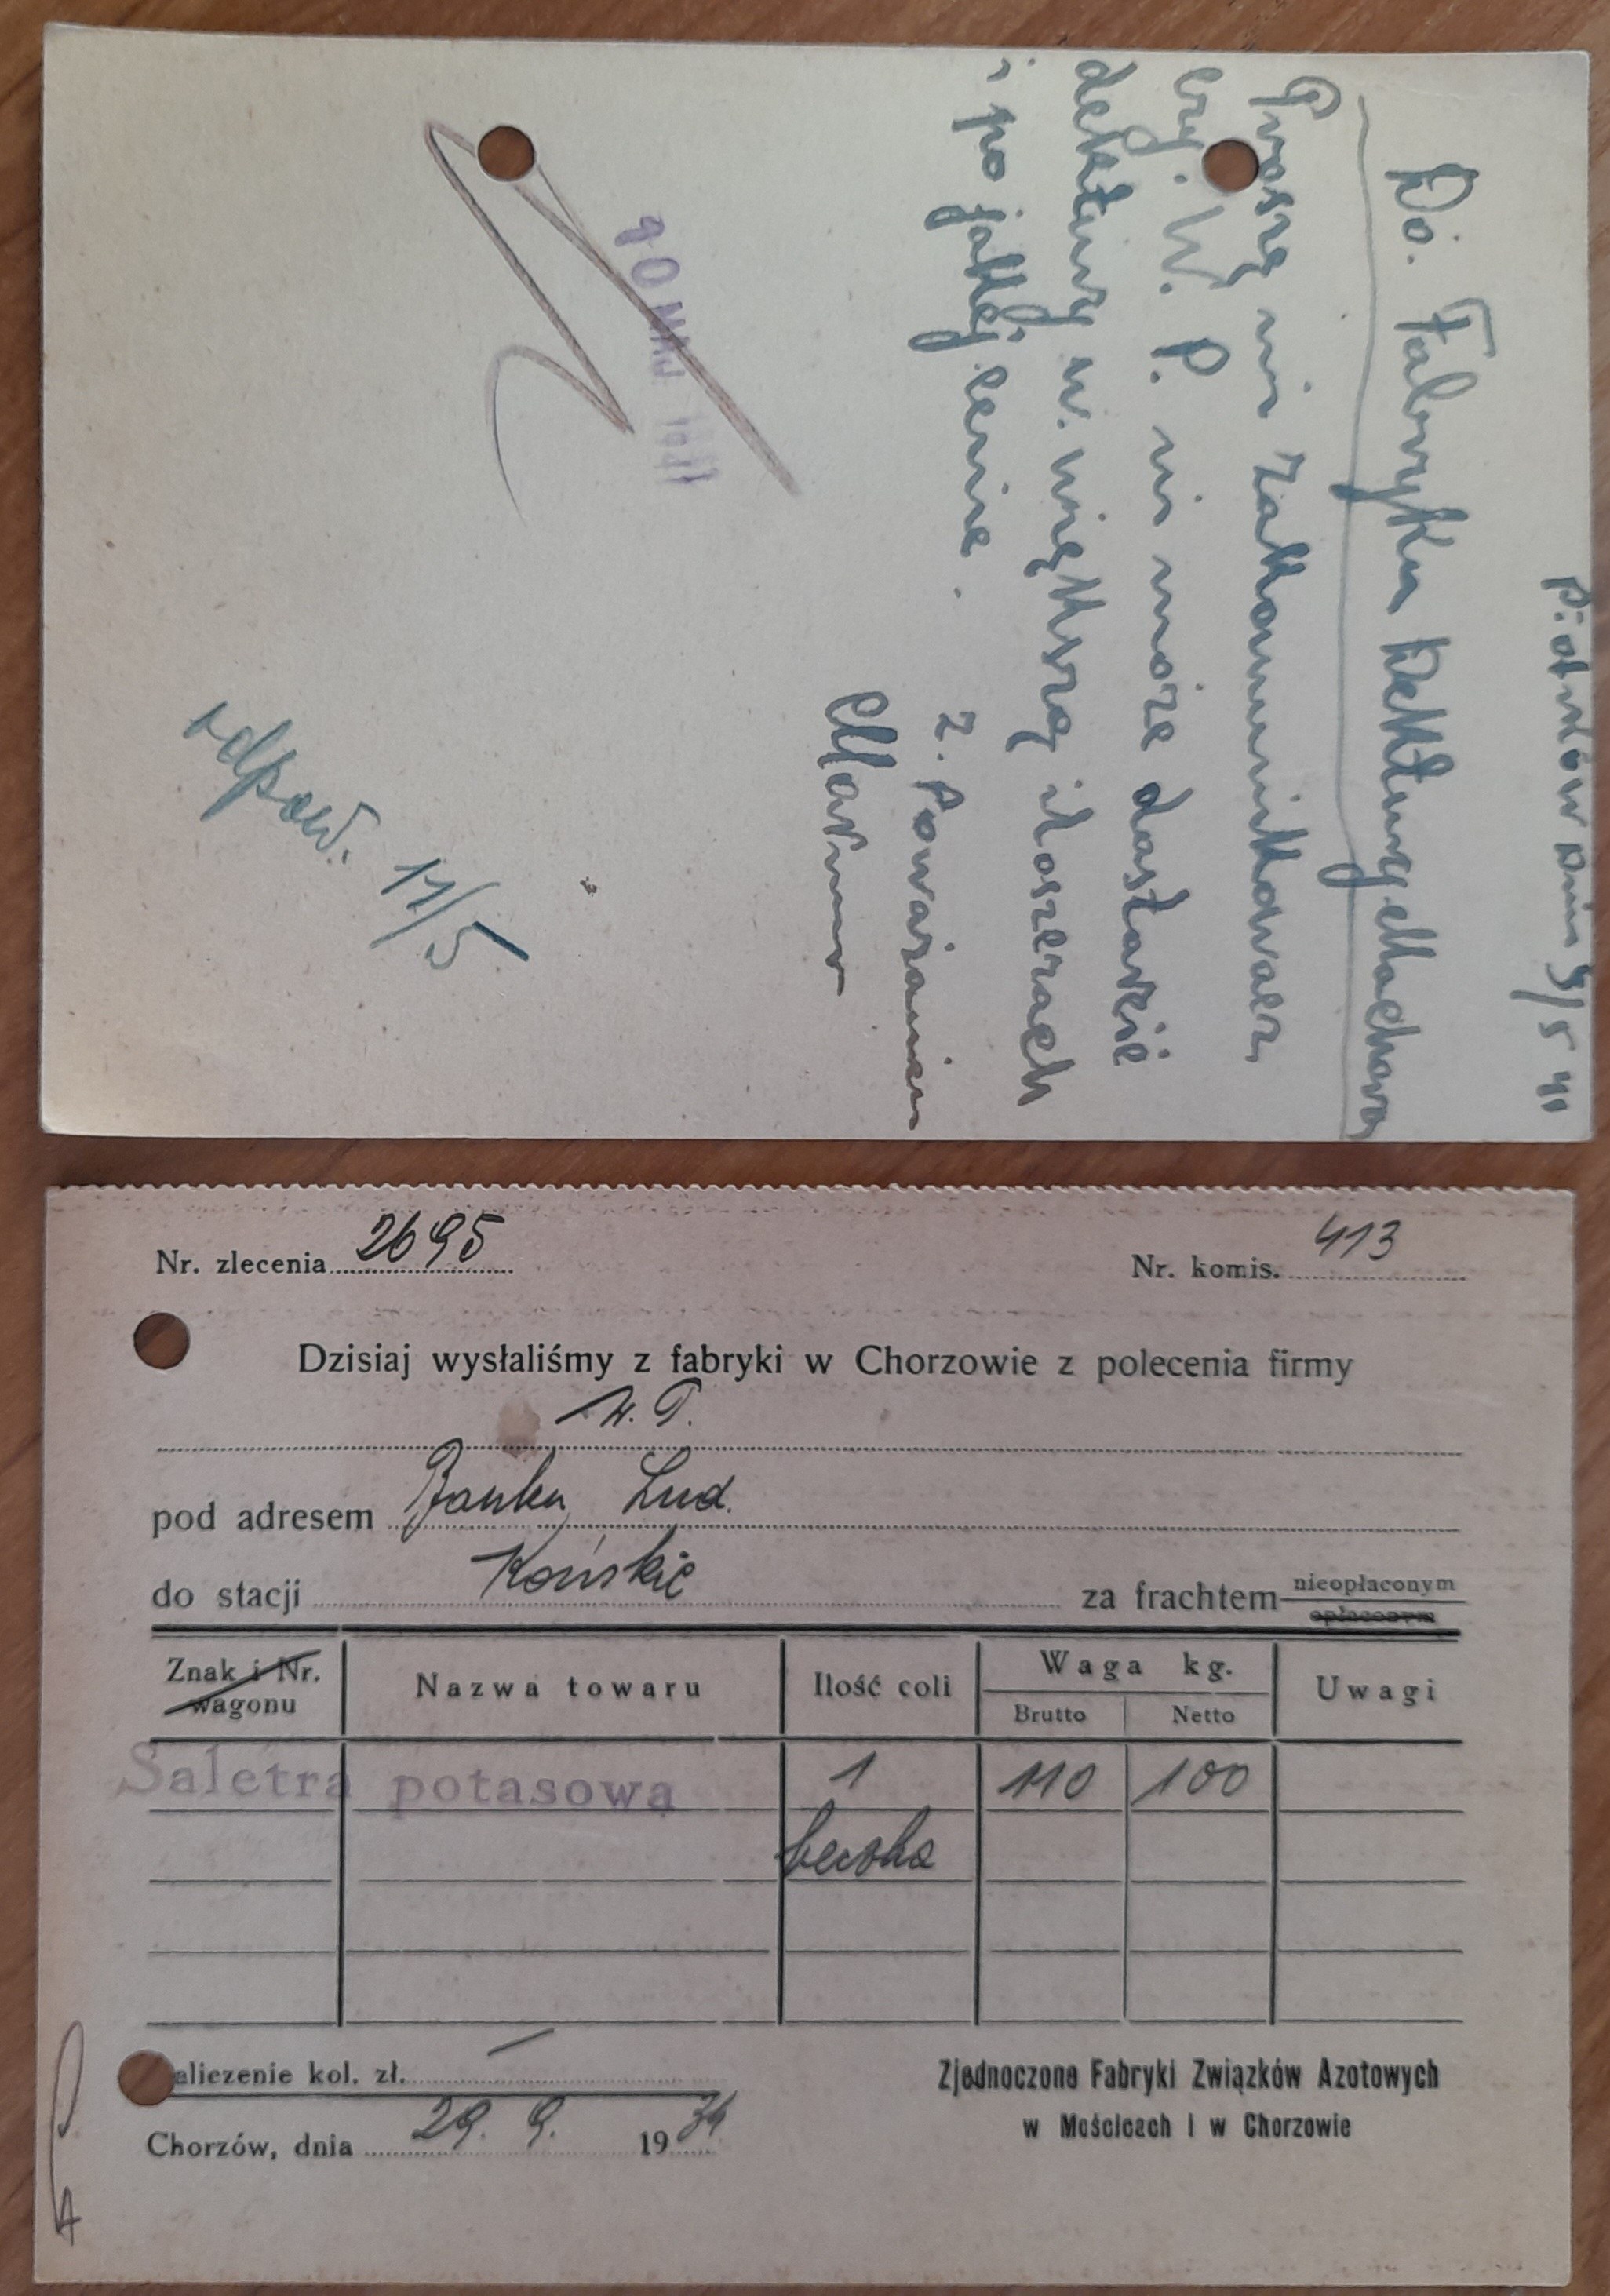 Piotrków dnia 9/5 41
Do. Fabryku dektury Machory
Proszę mi zakomunikowacz
czy. W. P. mi może dostarcić
dektury w. większą iloszczach
i po jakiej cenie.
z. Powarzaniem
10 MAI 1941
odpow. 11/5
Nr. zlecenia 2695
Nr. komis. 413
Dzisiaj wysłaliśmy z fabryki w Chorzowie z polecenia firmy
W. P.
pod adresem Banku Lud.
do stacji Końskie za frachtem nieopłaconym
opłaconym
Znak i Nr. wagonu
Nazwa towaru
Ilość coli
Waga kg.
Brutto
Netto
Uwagi
Saletra potasowa 1 110 100
beczka
aliczenie kol. zł. —
Chorzów, dnia 29. 9. 1934
Zjednoczone Fabryki Związków Azotowych
w Mościcach i w Chorzowie